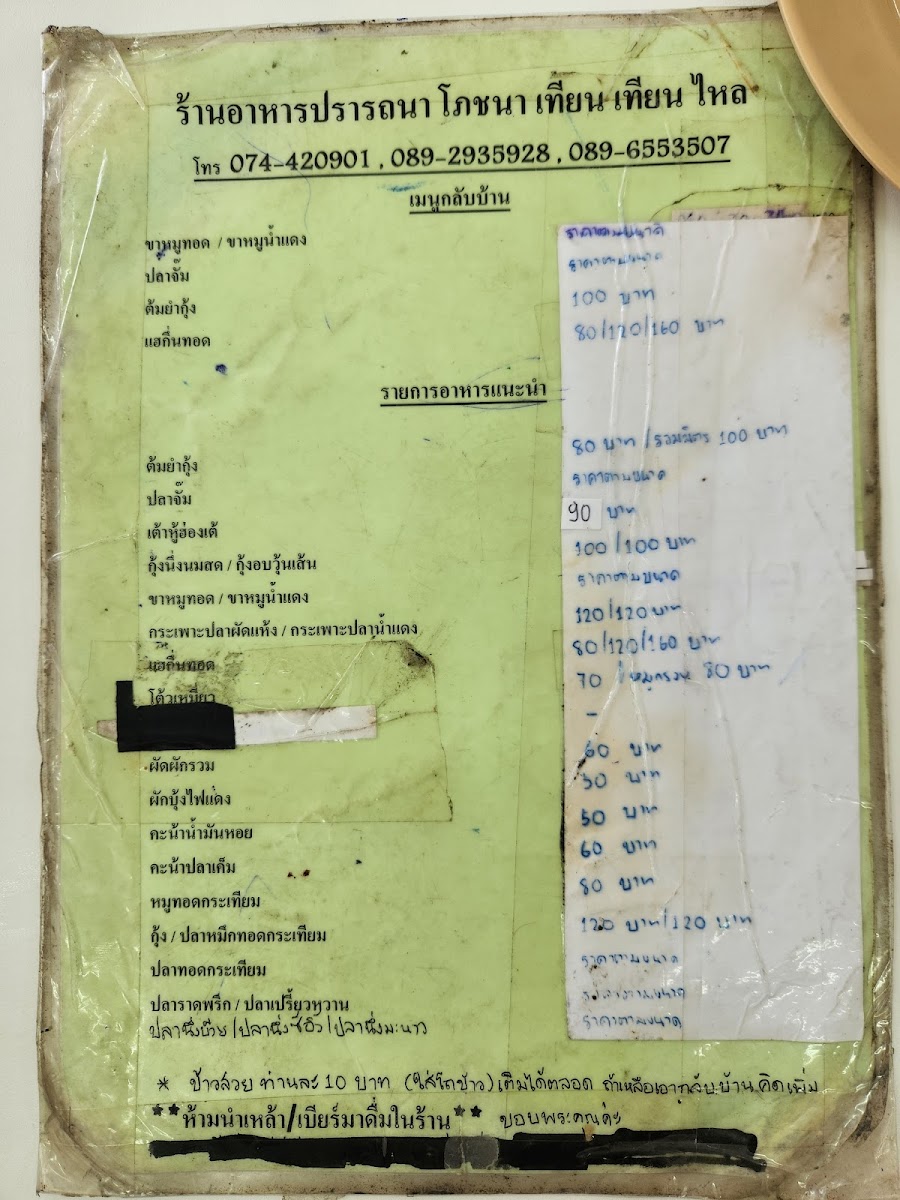 ร้านอาหารปรารถนา โภชนา เทียน เทียน ไหล
โทร 074-420901 , 089-2935928 , 089-6553507
เมนูกลับบ้าน
ขาหมูทอด / ขาหมูน้ำแดง ราคาตามขนาด
ปลาจั๊ม ราคาตามขนาด
ต้มยำกุ้ง 100 บาท
แฮกึ่นทอด 80/120/160 บาท
รายการอาหารแนะนำ
ต้มยำกุ้ง 80 บาท / รวมมิตร 100 บาท
ปลาจั๊ม ราคาตามขนาด
เต้าหู้ฮ่องเต้ 90 บาท
กุ้งนึ่งนมสด / กุ้งอบวุ้นเส้น 100/100 บาท
ขาหมูทอด / ขาหมูน้ำแดง ราคาตามขนาด
กระเพาะปลาผัดแห้ง / กระเพาะปลาน้ำแดง 120/120 บาท
แฮกึ่นทอด 80/120/160 บาท
โต้วเหมี่ยว 70 / หมูกรอบ 80 บาท
-
ผัดผักรวม 60 บาท
ผักบุ้งไฟแดง 50 บาท
คะน้าน้ำมันหอย 50 บาท
คะน้าปลาเค็ม 60 บาท
หมูทอดกระเทียม 80 บาท
กุ้ง / ปลาหมึกทอดกระเทียม 120 บาท/120 บาท
ปลาทอดกระเทียม ราคาตามขนาด
ปลาราดพริก / ปลาเปรี้ยวหวาน ราคาตามขนาด
ปลานึ่งบ๊วย / ปลานึ่งซีอิ๊ว / ปลานึ่งมะนาว ราคาตามขนาด
* ข้าวสวย ท่านละ 10 บาท (ใส่โถข้าว) เติมได้ตลอด ถ้าเหลือเอากลับบ้าน คิดเพิ่ม
**ห้ามนำเหล้า/เบียร์มาดื่มในร้าน** ขอบพระคุณค่ะ